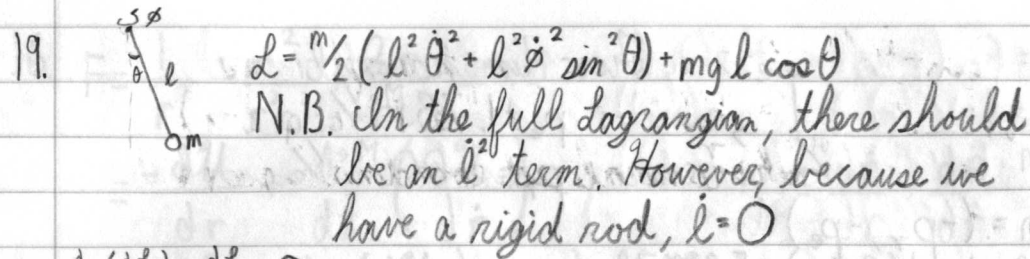 19.
φ
θ
l
m
L = m/2 ( l² θ̇² + l² φ̇² sin² θ) + mg l cos θ
N.B. In the full Lagrangian, there should
be an l̇² term. However, because we
have a rigid rod, l̇ = 0